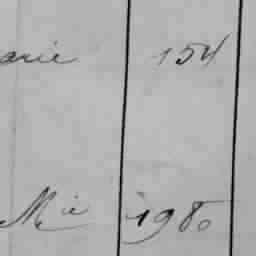 arie 154
Mie 1980